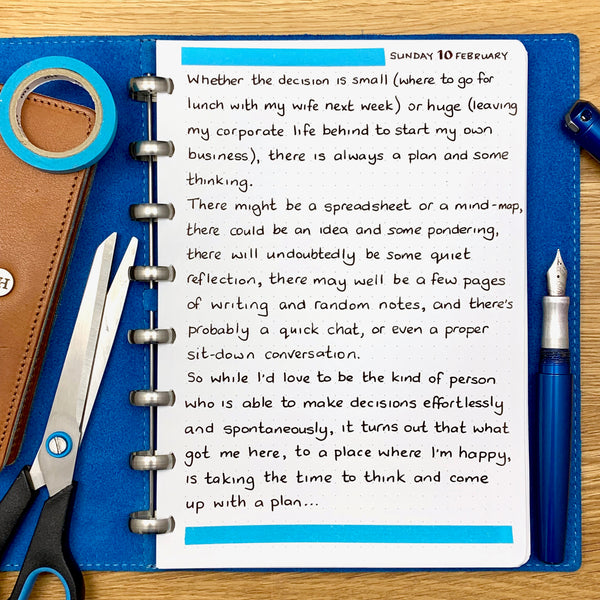 SUNDAY 10 FEBRUARY
Whether the decision is small (where to go for
lunch with my wife next week) or huge (leaving
my corporate life behind to start my own
business), there is always a plan and some
thinking.
There might be a spreadsheet or a mind-map,
there could be an idea and some pondering,
there will undoubtedly be some quiet
reflection, there may well be a few pages
of writing and random notes, and there's
probably a quick chat, or even a proper
sit-down conversation.
So while I'd love to be the kind of person
who is able to make decisions effortlessly
and spontaneously, it turns out that what
got me here, to a place where I'm happy,
is taking the time to think and come
up with a plan...